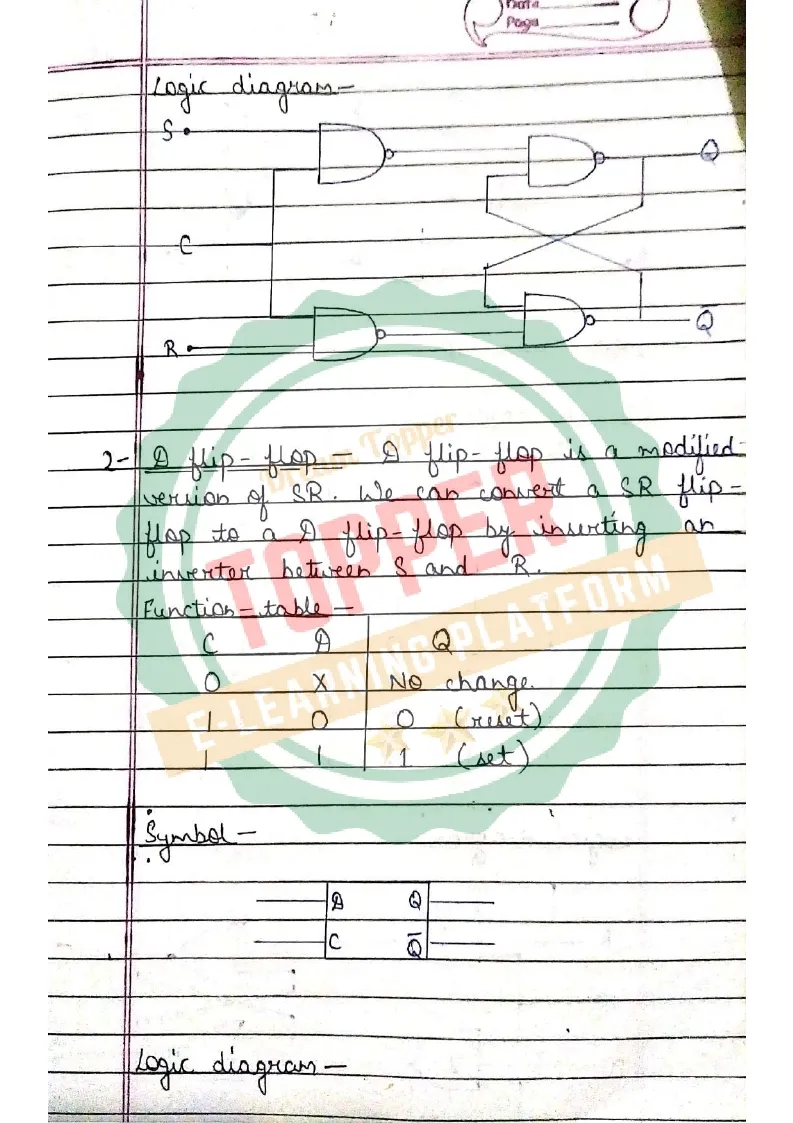 Date
Page
Logic diagram-
S
Q
C
R
Q̅
2- D flip-flop - D flip-flop is a modified
version of SR. We can convert a SR flip-
flop to a D flip-flop by inserting an
inverter between S and R.
Function-table-
C D Q
0 X No change.
1 0 0 (reset)
1 1 1 (set)
Symbol-
D Q
C Q̅
Logic diagram-
Dream Topper
TOPPER
E-LEARNING PLATFORM